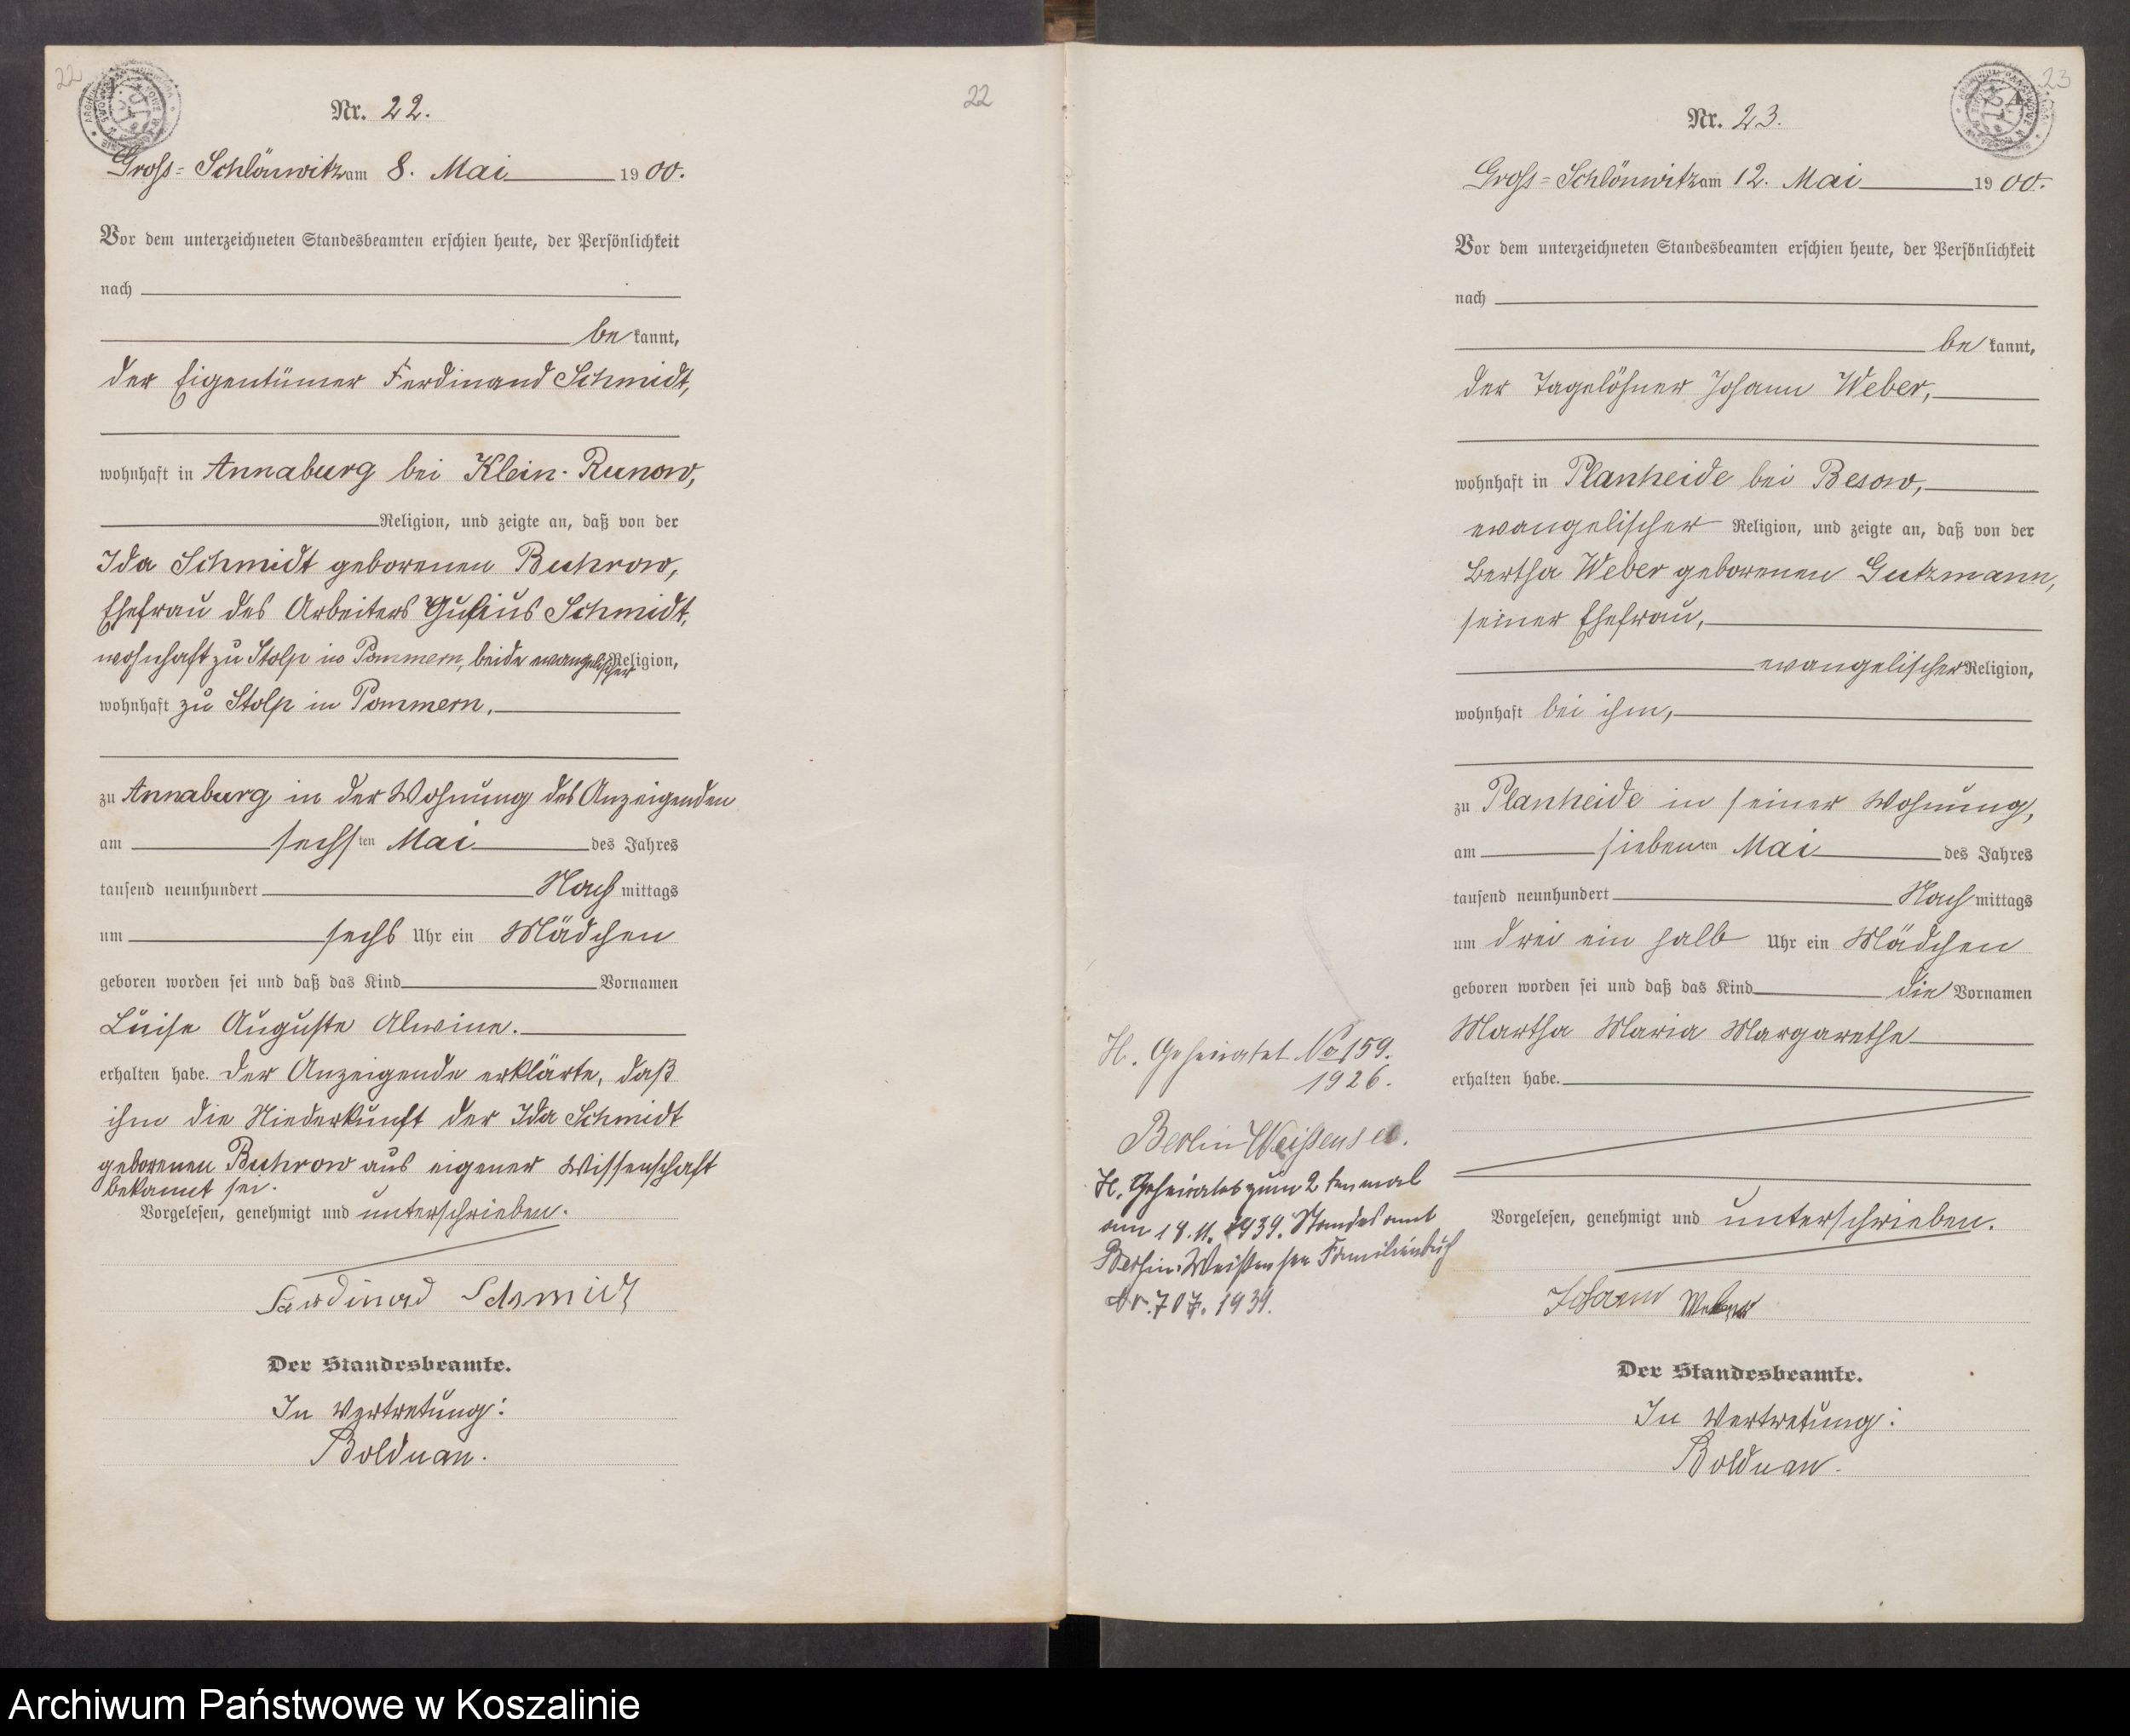 22
Nr. 22.
22
Gross-Schlönwitz am 8. Mai 1900.
Vor dem unterzeichneten Standesbeamten erschien heute, der Persönlichkeit
nach
be kannt,
der Eigentümer Ferdinand Schmidt,
wohnhaft in Annaburg bei Klein-Runow,
Religion, und zeigte an, daß von der
Ida Schmidt geborenen Buhrow,
Ehefrau des Arbeiters Julius Schmidt,
wohnhaft zu Stolp in Pommern, beide evangelischer Religion,
wohnhaft zu Stolp in Pommern,
zu Annaburg in der Wohnung des Anzeigenden
am sechsten Mai des Jahres
tausend neunhundert Nachmittags
um sechs Uhr ein Mädchen
geboren worden sei und daß das Kind Vornamen
Luise Auguste Alwine.
erhalten habe. Der Anzeigende erklärte, daß
ihm die Niederkunft der Ida Schmidt
geborenen Buhrow aus eigener Wissenschaft
bekannt sei.
Vorgelesen, genehmigt und unterschrieben.
Ferdinand Schmidt
Der Standesbeamte.
In Vertretung:
Bolduan.
23
Nr. 23.
Gross-Schlönwitz am 12. Mai 1900.
Vor dem unterzeichneten Standesbeamten erschien heute, der Persönlichkeit
nach
be kannt,
der Tagelöhner Johann Weber,
wohnhaft in Planheide bei Besow,
evangelischer Religion, und zeigte an, daß von der
Bertha Weber geborenen Gutzmann,
seiner Ehefrau,
evangelischer Religion,
wohnhaft bei ihm,
zu Planheide in seiner Wohnung,
am siebenten Mai des Jahres
tausend neunhundert Nachmittags
um drei ein halb Uhr ein Mädchen
geboren worden sei und daß das Kind die Vornamen
Martha Maria Margarethe
erhalten habe.
Vorgelesen, genehmigt und unterschrieben.
Johann Weber
Der Standesbeamte.
In Vertretung:
Bolduan.
H. Geheiratet No 159.
1926.
Berlin-Weißensee.
H. Geheiratet zum 2ten mal
am 11. 1939. Standesamt
Berlin-Weißensee Familienbuch
Nr. 707. 1939.
Archiwum Państwowe w Koszalinie